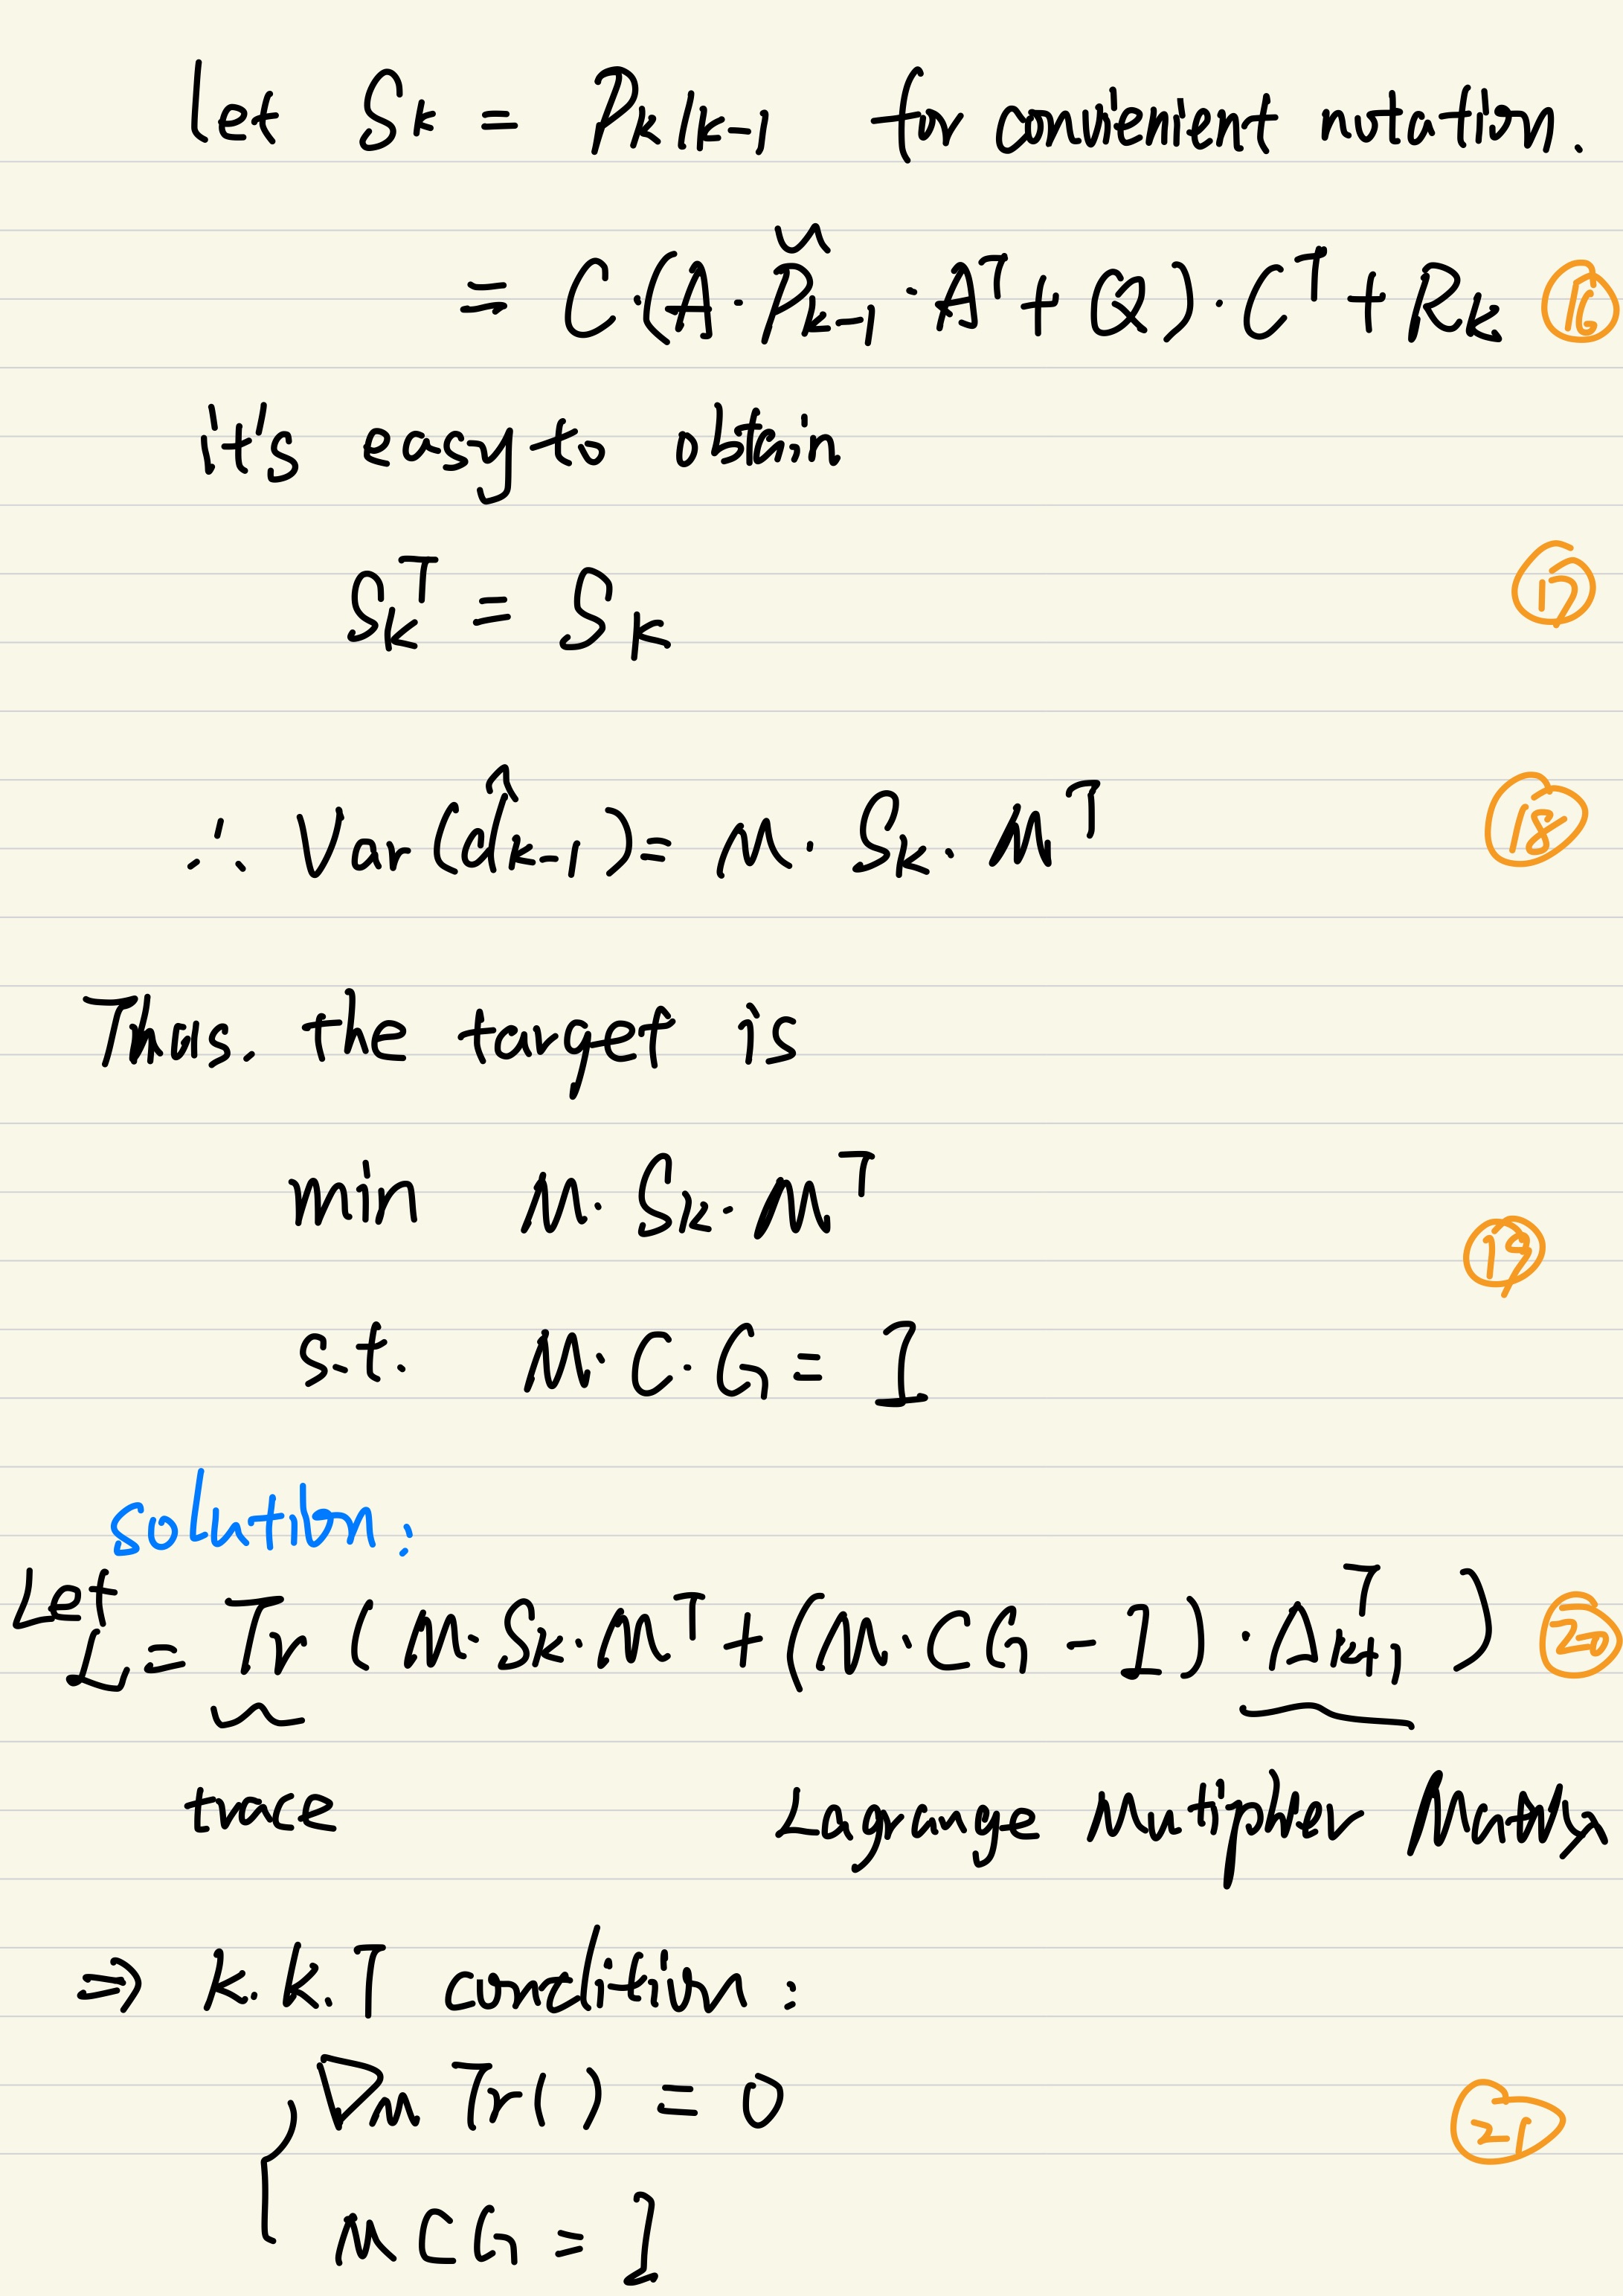 let Sk = Pk|k-1 for convienient notation.
= C·(A·P̌k-1·Aᵀ+Q)·Cᵀ+Rk ⑯
it's easy to obtain
Skᵀ = Sk ⑰
∴ Var(d̂k-1)= M·Sk·Mᵀ ⑱
Thus. the target is
min M·Sk·Mᵀ
⑲
s.t. M·C·G = I
solution:
Let
L = Tr(M·Sk·Mᵀ+(M·CG-I)·Λᵀk+1) ⑳
trace Lagrange Mutiplier Matrix
⇒ k.k.T condition:
∇m Tr() = 0
㉑
MCG = I